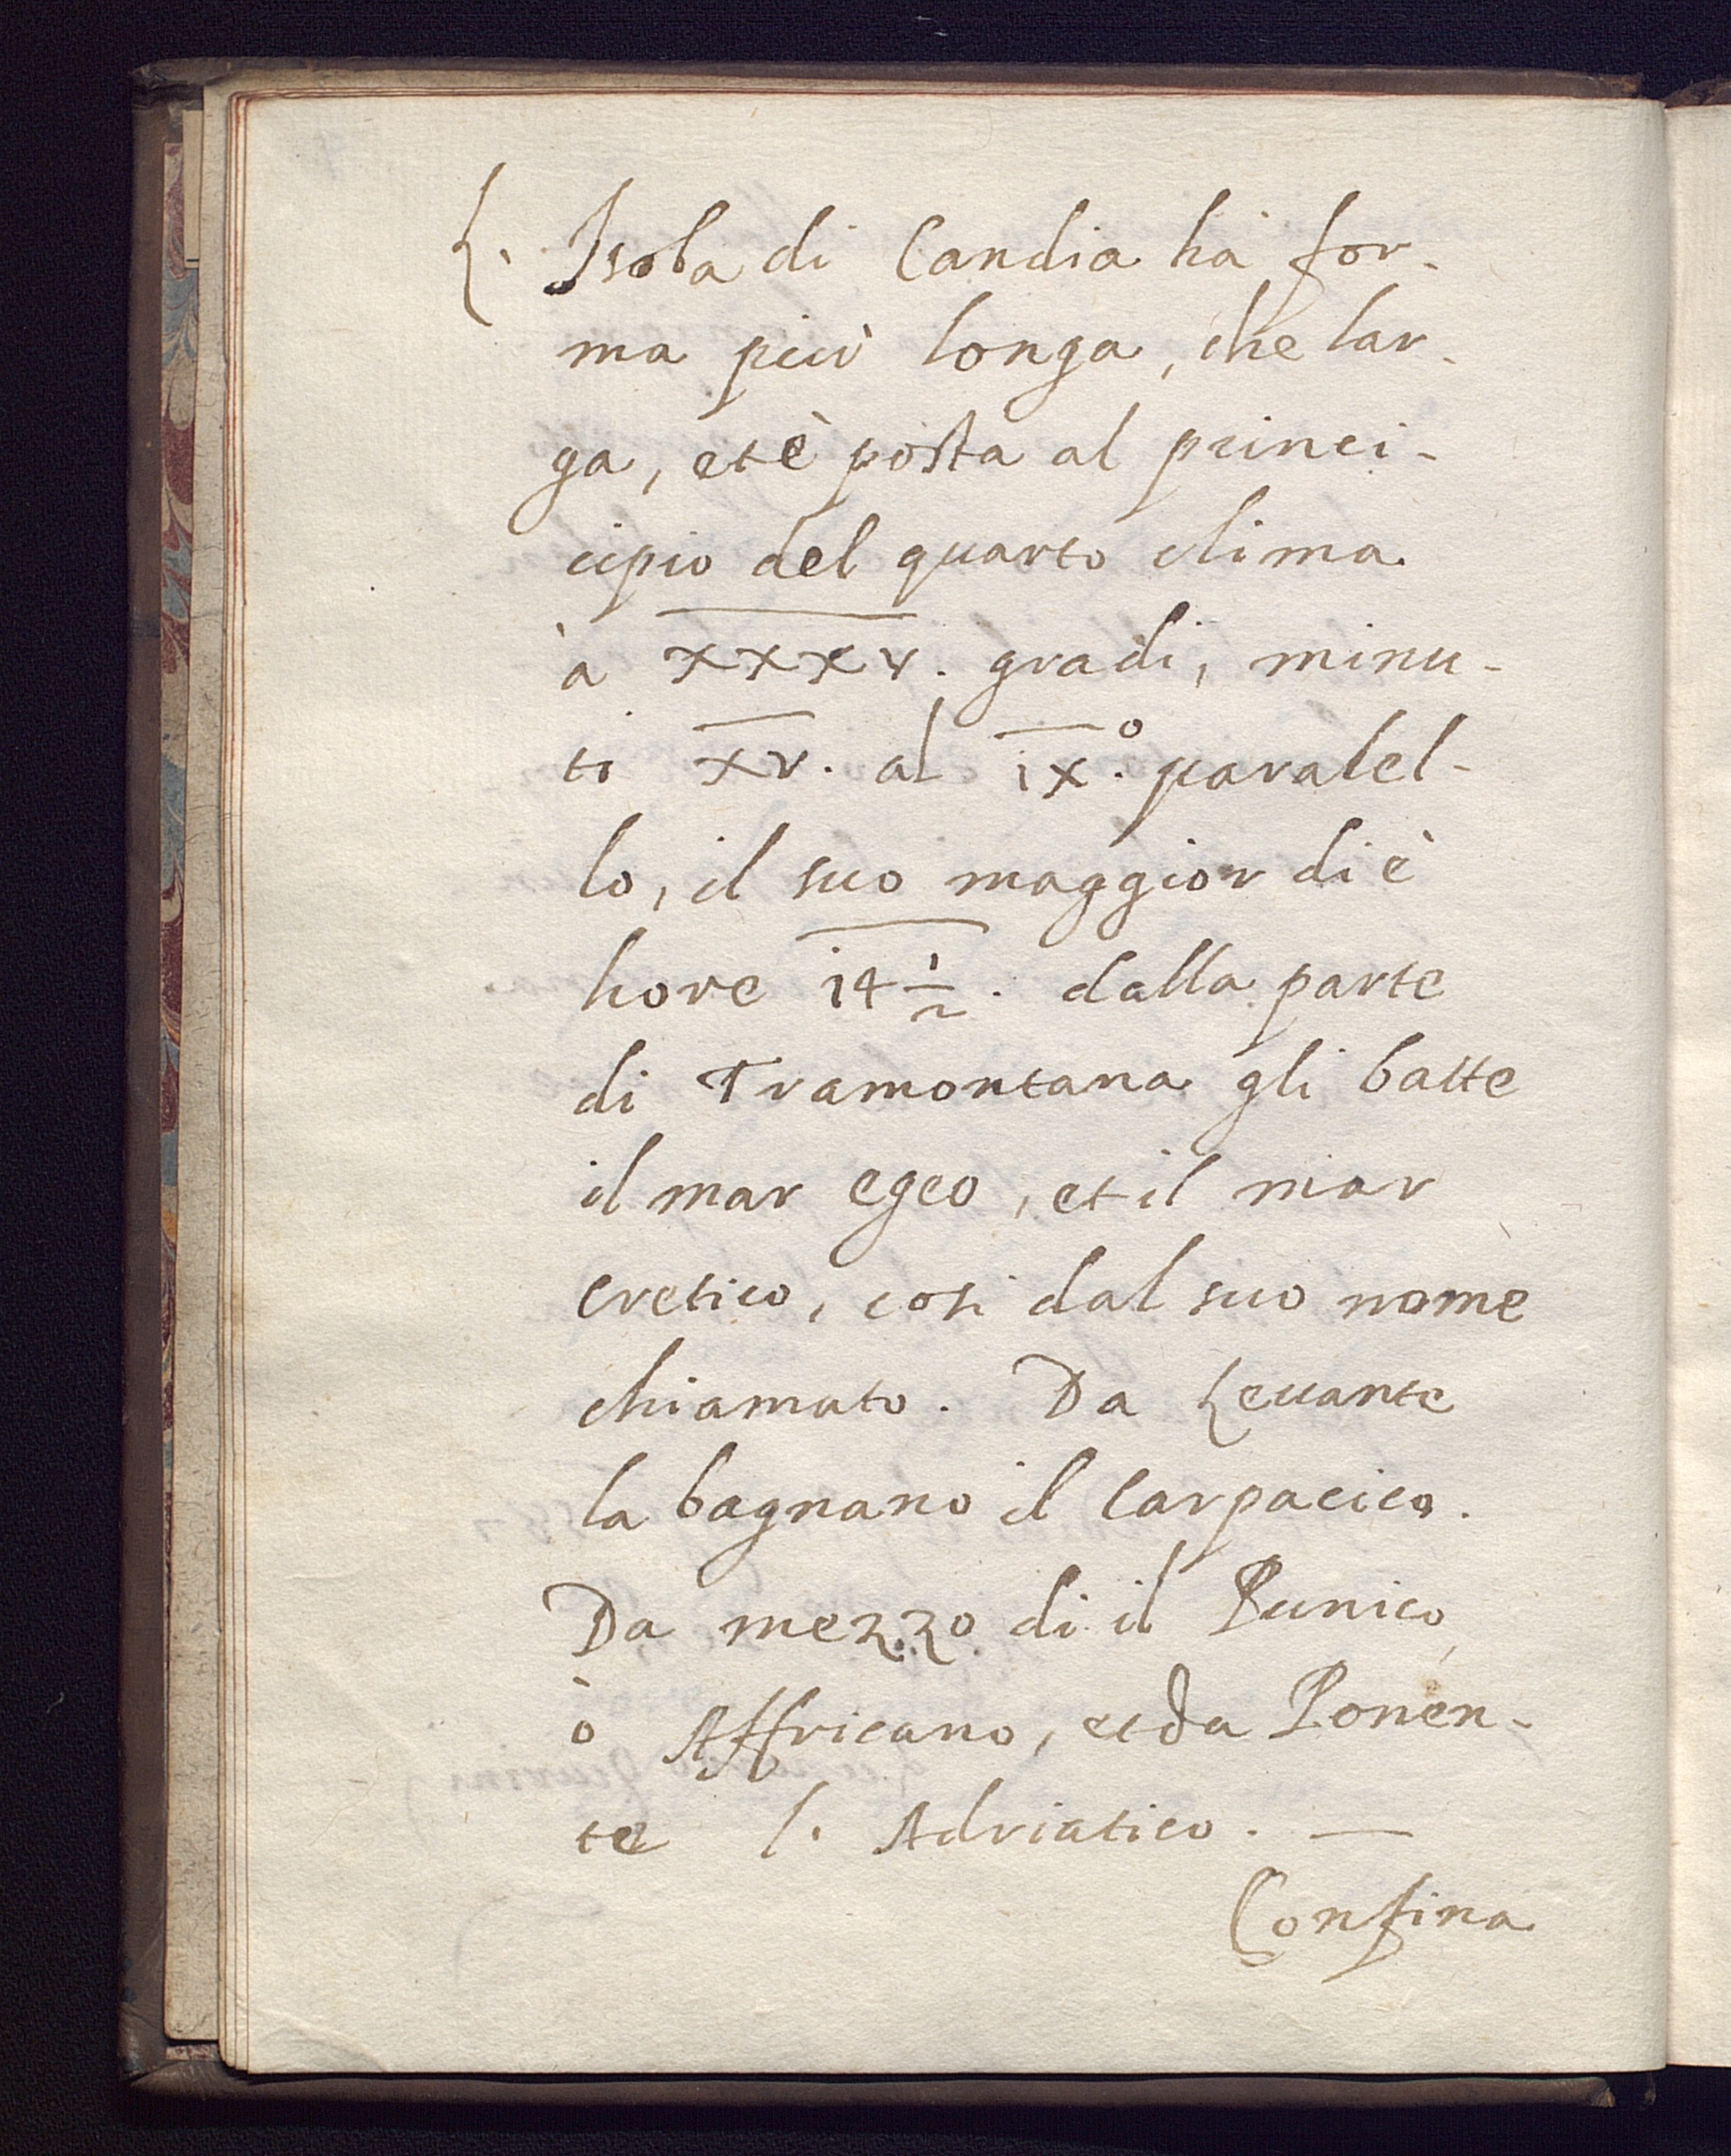 L. Isola di Candia hà for-
ma più longa, che lar-
ga, et è posta al princi-
cipio del quarto clima
à XXXV. gradi, minu-
ti XV. al IX.º paralel-
lo, il suo maggior di è
hore 14 ½. dalla parte
di Tramontana gli batte
il mar egeo, et il mar
cretico, cosi dal suo nome
chiamato. Da Leuante
la bagnano il Carpacico.
Da mezzo di il Punico,
ò Affricano, et da Ponen-
te l. Adriatico. —
Confina